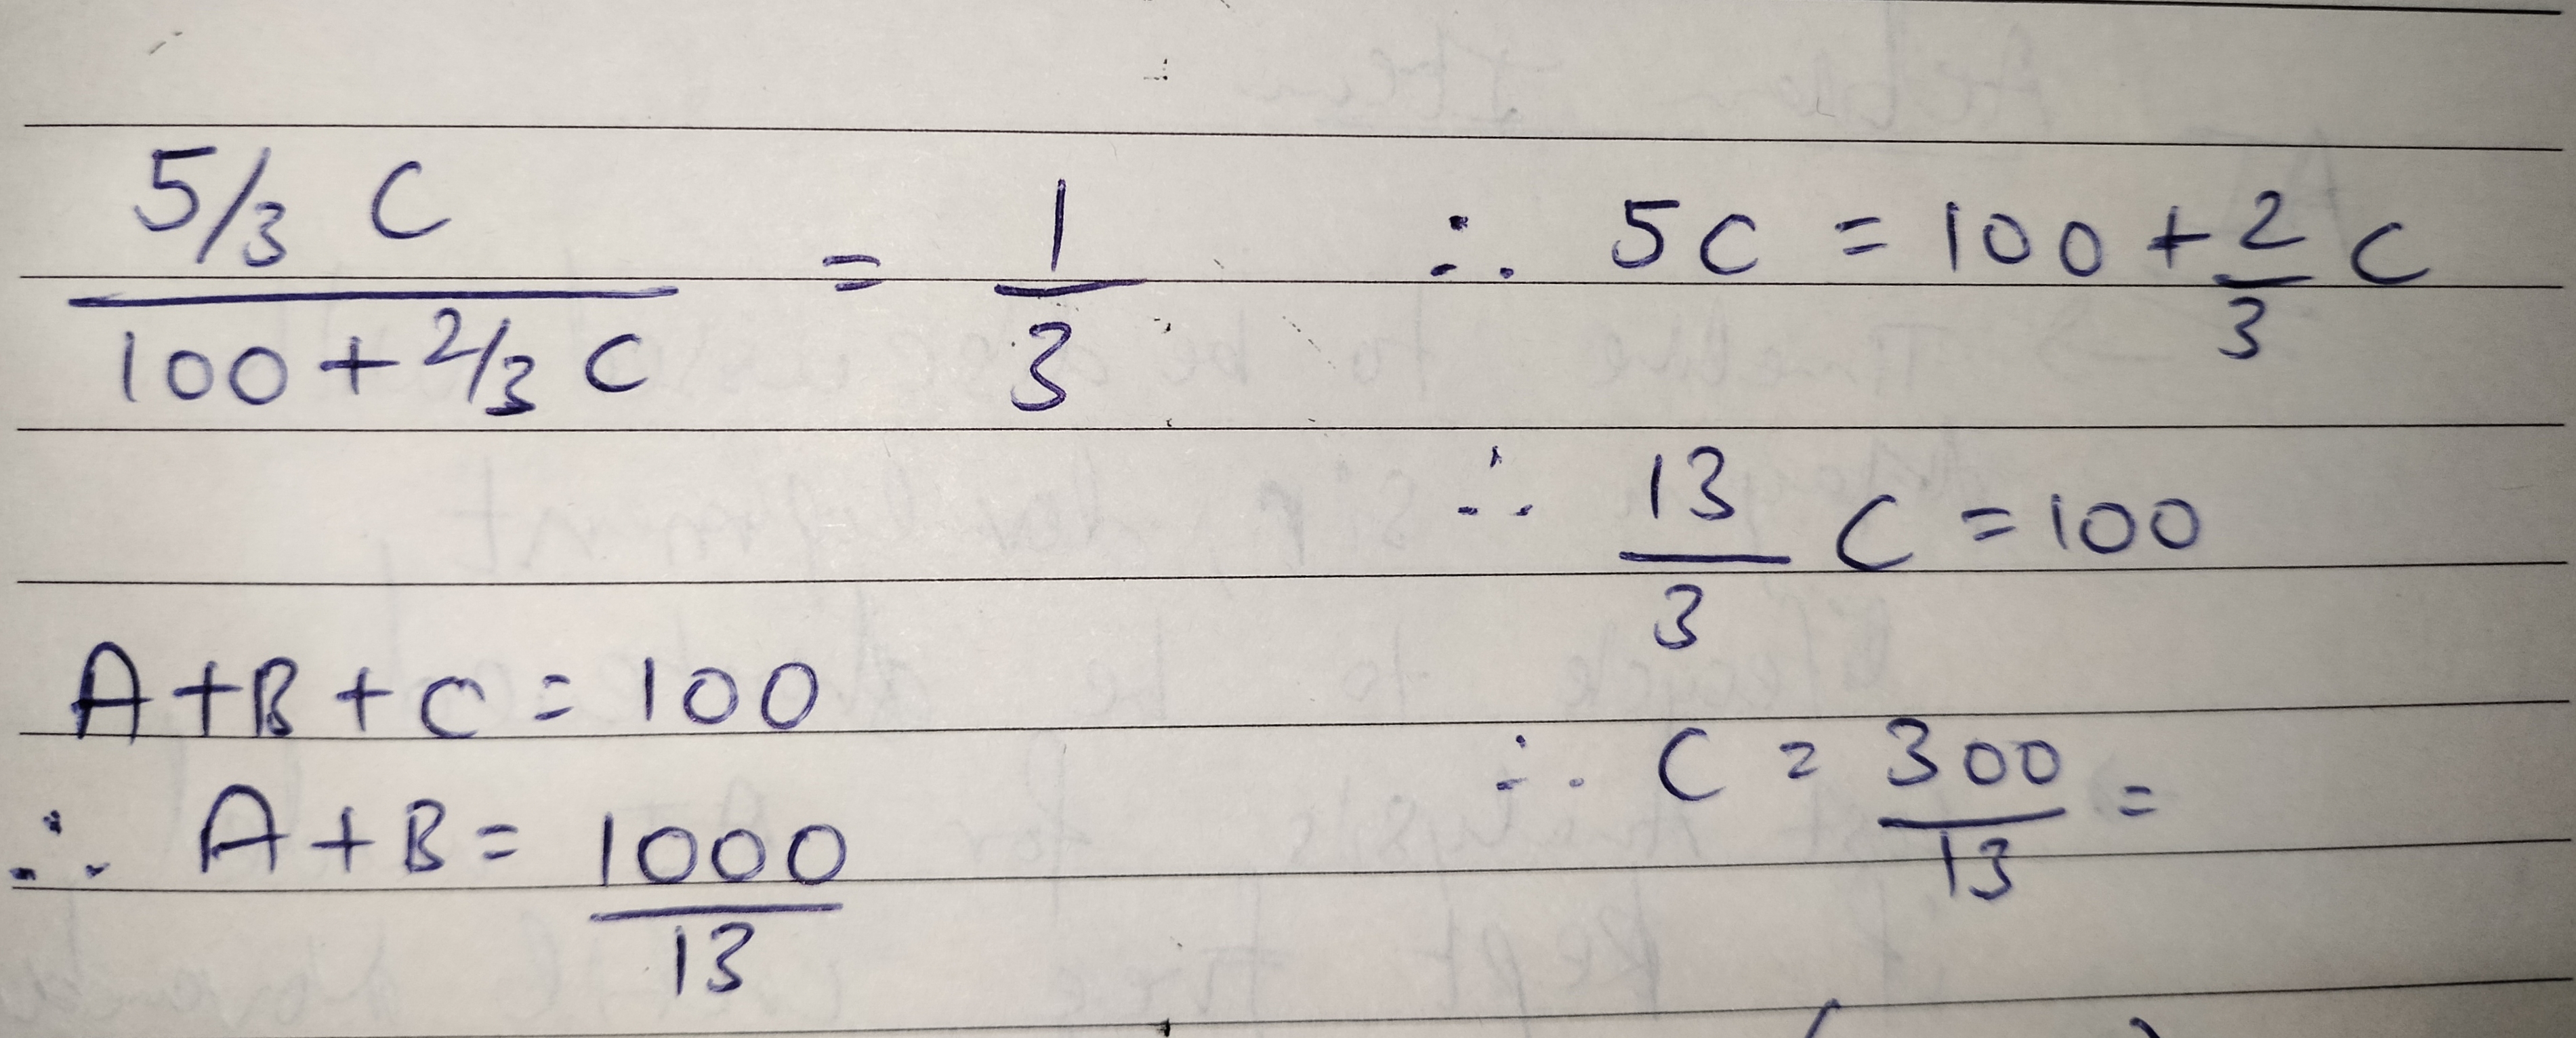 5/3 C / 100 + 2/3 C = 1/3 ∴ 5C = 100 + 2/3 C
∴ 13/3 C = 100
A + B + C = 100
∴ C = 300/13 =
∴ A + B = 1000/13